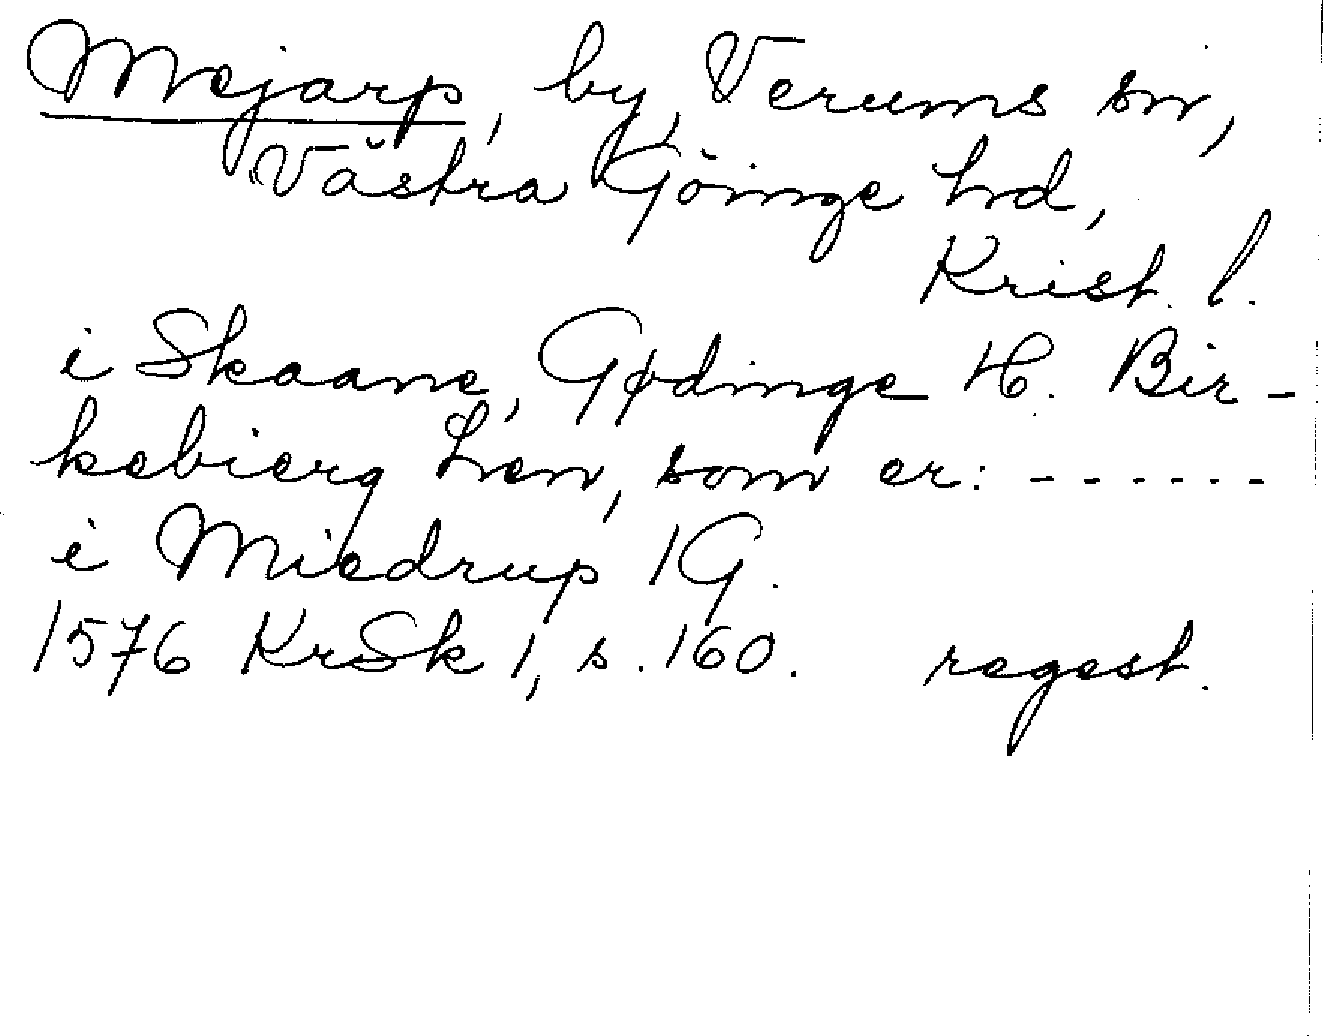 Mejarp, by, Verums sn,
Västra Göinge hd,
Krist. l.
i Skaane, Gødinge H. Bir-
kebierg Len, som er: - - - - - -
i Miedrup 1 G.
1576 KrSk 1, s. 160. regest.